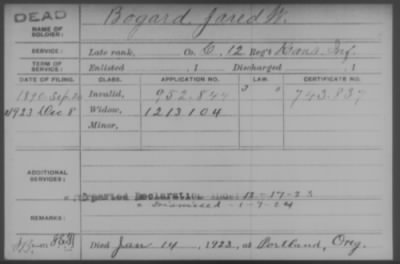 DEAD
NAME OF SOLDIER: Bogard, Jared W.
SERVICE: Late rank, Co. C, 12 Reg't Kans Inf.
TERM OF SERVICE: Enlisted , 1 Discharged , 1
DATE OF FILING. CLASS. APPLICATION NO. LAW. CERTIFICATE NO.
1890 Sep Invalid, 952.844 743.837
1923 Dec 8 Widow, 1213104
Minor,
ADDITIONAL SERVICES:
Declaration 12-17-23
Dismissed 1-9-24
REMARKS:
Died Jan 14, 1923, at Portland, Oreg.